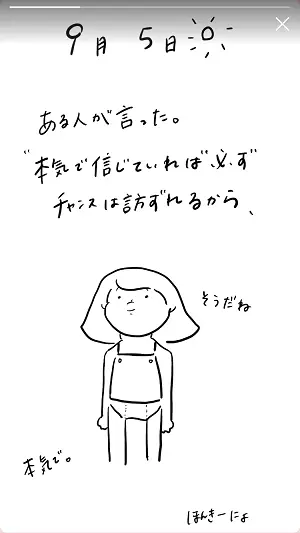 9月 5日
ある人が言った。
"本気で信じていれば"必ず"
チャンスは訪ずれるから、
そうだね
本気で。
ほんきーにょ